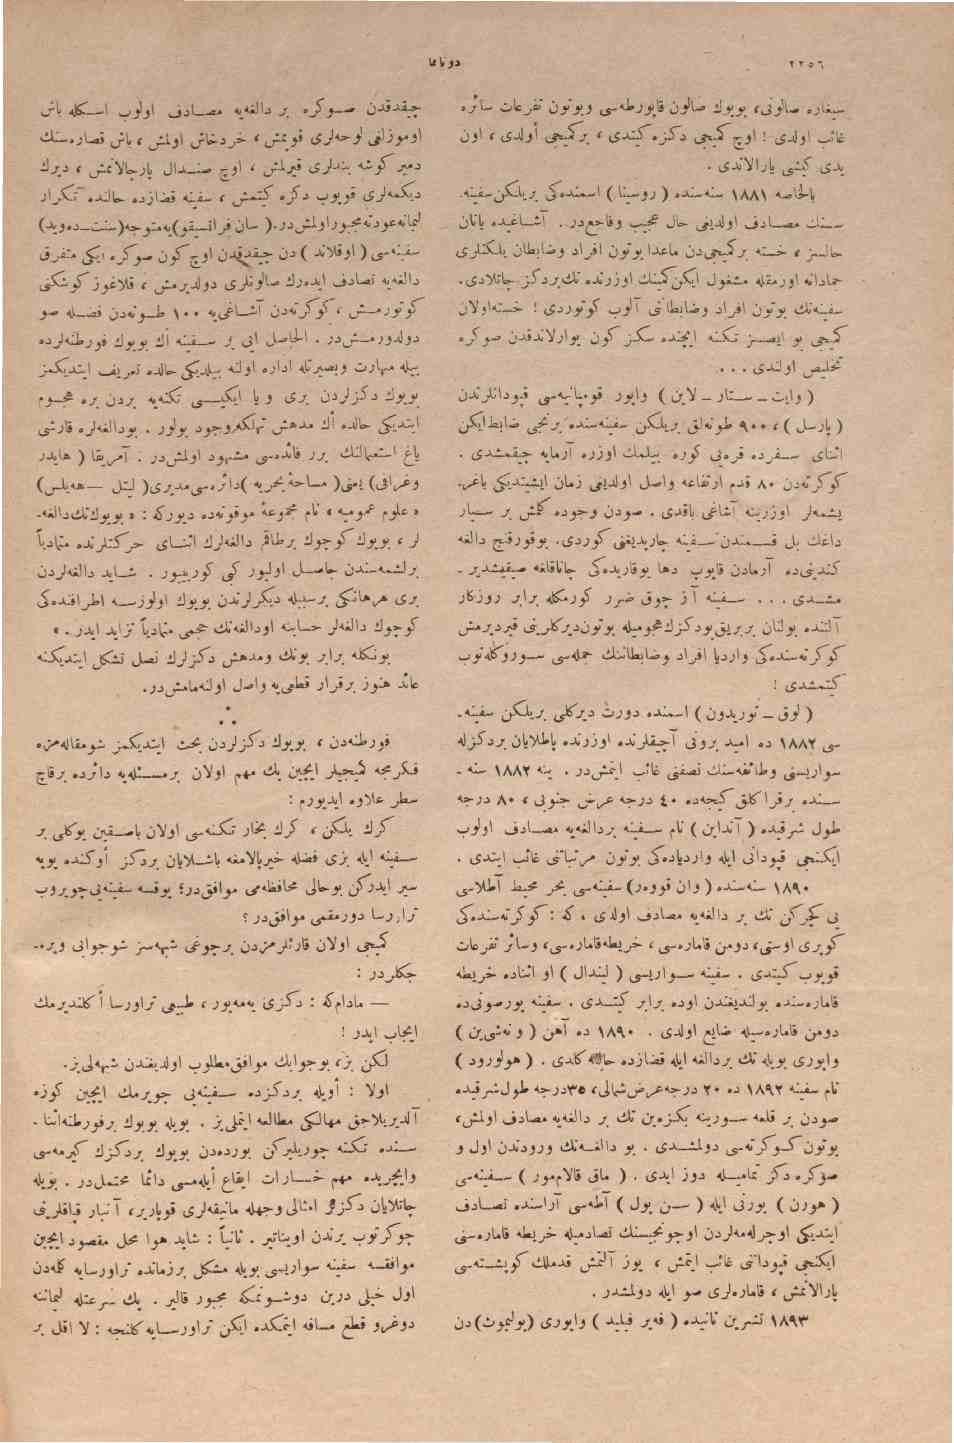 ٢٢٥٦
دونانما
سیغاره صالونی، بویوك صالون قاپورطه‌سی وبوتون تفرعات سائره
غائب اولدی ! اوچ كمیجی دكزه كیتدی ، بركمیجی أولدی ، اون
یدی كیشی یارالاندی .
بالخاصه ١٨٨١ سنه‌سنده ( روسینا ) اسمنده‌كی بریلكن سفینه‌
سنك مصادف اولدیغی حال عجیب وفاجع‌در. آشاغیده یاتان
حالسز ، خسته بركمیجی‌دن ماعدا بوتون افراد وضابطان یلكنلری
حمادانه اورمقله مشغول ایكن‌كمینك اوزرنده تك‌بردكز چاتلادی.
سفینه‌نك بوتون افراد وضابطانی آلوب كوتوردی ! خسته‌اولان
كمیجی بو ایصسز تكنه ایچنده سكز كون یوارلاندقدن صوكره
تخلیص اولندی ...
( وایت ـ ستار ـ لاین ) واپور قومپانیه‌سی قپودانلرندن
( پارسل )، ٩٠٠ طونه‌لق بریلكن سفینه‌سنده برنجی ضابط‌ایكن
اثنای سفرده قره‌یی كوره بیلمك اوزره آرمایه چیقمشدی .
كوكرته‌دن ٨٠ قدم ارتفاعه واصل اولدیغی زمان ایشیتدیكی باغر-
یشمه‌لر اوزرینه آشاغی باقدی. صودن وجوده كلمش بر سیار
داغك بل قسمندن سفینه چارپدیغنی كوردی. بوقورقنج دالغه
كندینی‌ده آرمادن قاپوب دها یوقاریده‌كی چاناقلغه صیقیشدیر -
مشدی ... سفینه آز چوق ضرر كورمكله برابر روزكار
آلتنده بولنان بربریق‌بودكزك‌هجومیله بوتون‌دیركلرینی قیردیرمش
كوكرته‌سنده‌كی واردیا افراد وضابطاننك جمله‌سی سوروكله‌نوب
كیتمشدی !
( لوق ـ توریدون ) اسمنده دورت دیركلی بریلكن سفینه-
سی ١٨٨٢ ده امید برونی آچیقلرنده اوزرنده پاطلایان بردكزله
سواریسنی وطائفه‌سنك نصفنی غائب ایتمش‌در . ینه ١٨٨٢ سنه -
سنده برقراكلق كیجه‌ده ٤٠ درجه عرض جنوبی ، ٨٠ درجه
طول شرقیده ( آنداین ) نام سفینه بردالغه‌یه مصادف اولوب
ایكنجی قپودانی ایله واردیاده‌كی بوتون مرتباتنی غائب ایتدی .
١٨٩٠ سنه‌سنده ( وان قووه‌ر) سفینه‌سی بحر محیط آطلاسی
یی كچركن تك بر دالغه‌یه مصادف اولدی ، كه : كوكرته‌سنده‌كی
كوپری اوستی، دومن قاماره‌سی ، خریطه‌قاماره‌سی، وسائر تفرعات
قوپوب كیتدی . سفینه سواریسی ( لیندال ) او اثناده خریطه
قاماره‌سنده بولندیغندن اوده برابر كیتدی . سفینه بورصونی‌ده
دومن قاماره‌سیله ضایع اولدی . ١٨٩٠ ده آهن ( ونه‌شی‌ین )
واپوری بویله تك بردالغه ایله قضازده حاله كلدی . ( هولورود )
نام سفینه ١٨٩٢ ده ٢٠ درجه‌عرض‌شمالی، ٣٥درجه طول‌شرقیده
صودن بر قلعه سورینه بكزه‌ین تك بر دالغه‌یه مصادف اولمش،
بوتون كوكرته‌سی دولمشدی . بو دالغه‌نك ورودندن اول و
صوكره دكز تمامیله دوز ایدی . ( ماق قالام‌مور ) سفینه‌سی
( هورن ) بورنی ایله ( سن پول ) آطه‌سی آراسنده تصادف
ایتدیكی اوچ‌له‌مه‌لردن اوچونجیسنك تصادمیله خریطه قاماره‌سنی
ایكنجی قپوداننی غائب ایتمش ، یوز آلتمش قدملك كوپشته‌سی
پارالانمش ، قاماره‌لری صو ایله دولمشدر .
١٨٩٣ تشرین ثانیده ( فه‌یر فیلید ) واپوری (پولیموث)دن
چیقدقدن صوكره بر دالغه‌یه مصادف اولوب اسكله باش
اوموزلغی لوحه‌لری قوپمش ، خردخاش اولمش ، باش قصاره‌سنك
دمیر كوشه بندلری قیرلمش ، اوچ صندال پارچالانمش ، دیرك
دیكمه‌لری قوپوب دكزه كیتمش ، سفینه قضازده حالنده تكرار
لیمانه‌عودته‌مجبوراولمش‌در.( سان‌فرانسیقو)یه‌متوجه(سنت‌ـده‌وید)
سفینه‌سی ( اوقلاند ) دن چیقدقدن اوچ كون صوكره ایكی متفرق
دالغه‌یه تصادف ایده‌رك صالونلری دولدیرمش ، قلاغوز كوشكنی
كوتورمش ، كوكرته‌دن آشاغی‌یه ١٠٠ طونه‌دن فضله صو
دولدورمش‌در . الحاصل ایی بر سفینه اك بویوك فورطنه‌لرده
بیله مهارت وبصیرتله اداره اولنه بیلدیكی حالده تعریف ایتدیكمز
بویوك دكزلردن بری و یا ایكیسی تكنه‌یه بردن بره هجوم
ایتدیكی حالده اك مدهش تهلكه‌وجود بولور . بودالغه‌لره قارشی
یاغ استعمالنك برر فائده‌سی مشهود اولمش‌در . آمریقا ( هایدر
وغرافی) یعنی( مساحهٔ بحریه )دائره‌سی‌مدیری( لیتل —هه‌یلس)
« علوم عمومیه » نام مجموعهٔ موقوته‌ده دیوركه : « بویوك‌تك‌دالغه-
لر ، بویوك كوچوك برطاقم دالغه‌لرك اثنای حركتلرنده متمادیاً
برلشمه‌سندن حاصل اولیور كبی كورینیور . شاید دالغه‌لردن
بری هرهانكی برسببله دیكرلرندن بویوك اولورسه اطرافنده‌كی
كوچوك دالغه‌لر حسابنه اودالغه‌نك حجمی متمادیاً تزاید ایدر . »
بونكله برابر بوتك ومدهش دكزلرك نصل تشكل ایتدیكنه
عائد هنوز برقرار قطعی‌یه واصل اولنه‌مامش‌در.
* * *
فورطنه‌دن ، بویوك دكزلردن بحث ایتدیكمز شومقاله‌مزه
فكریمجه كمیجیلر ایچین پك مهم اولان برمسئله‌یه دائرده برقاچ
سطر علاوه ایدیورم :
كرك یلكن ، كرك بخار تكنه‌سی اولان باصقین یوكلی بر
سفینه ایله بزی فضله خیرپالامغه باشلایان بردكز أوكنده پوپه
سیر ایدركن بوحالی محافظه‌می موافق‌در؛ یوقسه سفینه‌یی‌چویروب
تراورسا دورمقمی موافق‌در ؟
كمیجی اولان قارئلرمزدن برچوغی شبهه‌سز شوجوابی ویره-
جكلردر :
— مادام‌كه : دكزی یه‌مه‌یور ، طبیعی تراورسا أكلندیرمك
ایجاب ایدر !
لكن بز، بوجوابك موافق‌مطلوب اولدیغندن شبهه‌لی‌یز.
اولا : أویله بردكزده سفینه‌یی چویرمك ایچین كوزه
آلدیریلاجق مهالكی مطالعه ایتملی‌یز . بویله بویوك برفورطنه‌اثنا-
سنده تكنه چوریلیركن بورده‌دن بویوك بردكزك كیرمه‌سی
وایچریده مهم خسارات ایقاع ایله‌مسی دائما محتمل‌در . بویله
چاتلایان دكزلر امثالی وجهله مانیقه‌لری قوپاریر، آنبار قپاقلرینی
چوكرتوب یرندن اوینا‌تیر . ثانیاً : شاید هوا محل مقصود ایچین
موافقسه سفینه سواریسی بویله مشكل برزمانده تراورسایه كلمه‌دن
اول خیلی درین دوشونمكه مجبور قالیر . پك سرعتله لیماننه
دوغرو قطع مسافه ایتمكده ایكن تراورسایه كلنجه : لا اقل بر